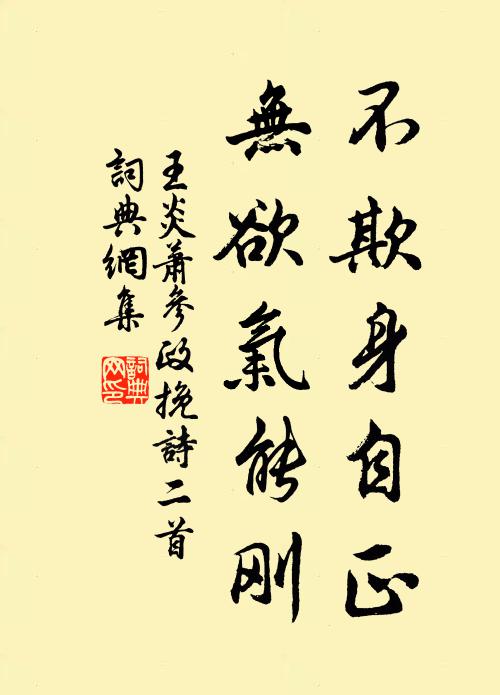 不欺身自正
無欲氣能刚
王炎蕭參政挽詩二首
詞典網集
詞典網印